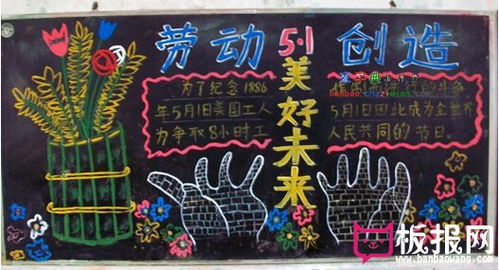 劳动 5·1 创造
美好未来
为了纪念1886
年5月1日美国工人
为争取8小时工
5月1日因此成为全世界
人民共同的节日。
板报网
www.banbaowang.com